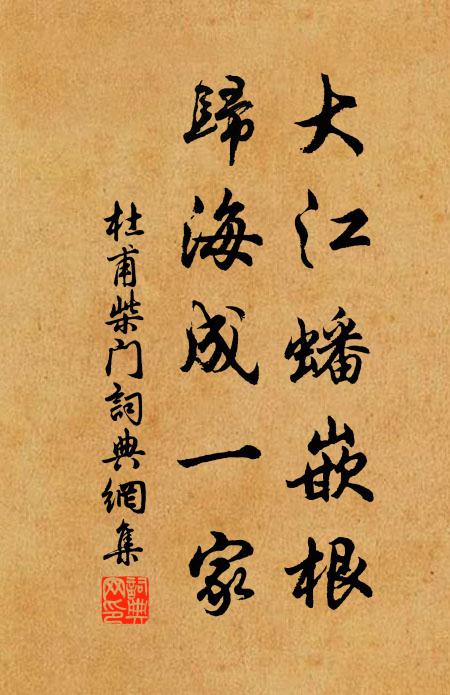 大江蟠嵌根
歸海成一家
杜甫柴门詞典網集
詞典网印